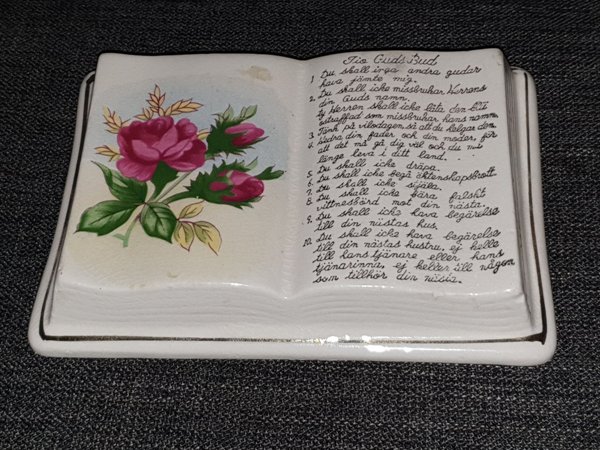 Tio Guds Bud
1. Du skall inga andra gudar
hava jämte mig.
2. Du skall icke missbruka Herrens
din Guds namn.
Ty Herren skall icke låta den bli
ostraffad som missbrukar hans namn.
3. Tänk på vilodagen, så att du helgar den.
4. Hedra din fader och din moder, för
att det må gå dig väl och du må
länge leva i ditt land...
5. Du skall icke dräpa.
6. Du skall icke begå äktenskapsbrott.
7. Du skall icke stjäla.
8. Du skall icke bära falskt
vittnesbörd mot din nästa.
9. Du skall icke hava begärelse
till din nästas hus.
10. Du skall icke hava begärelse
till din nästas hustru, ej heller
till hans tjänare eller hans
tjänarinna, ej heller till någon
som tillhör din nästa.